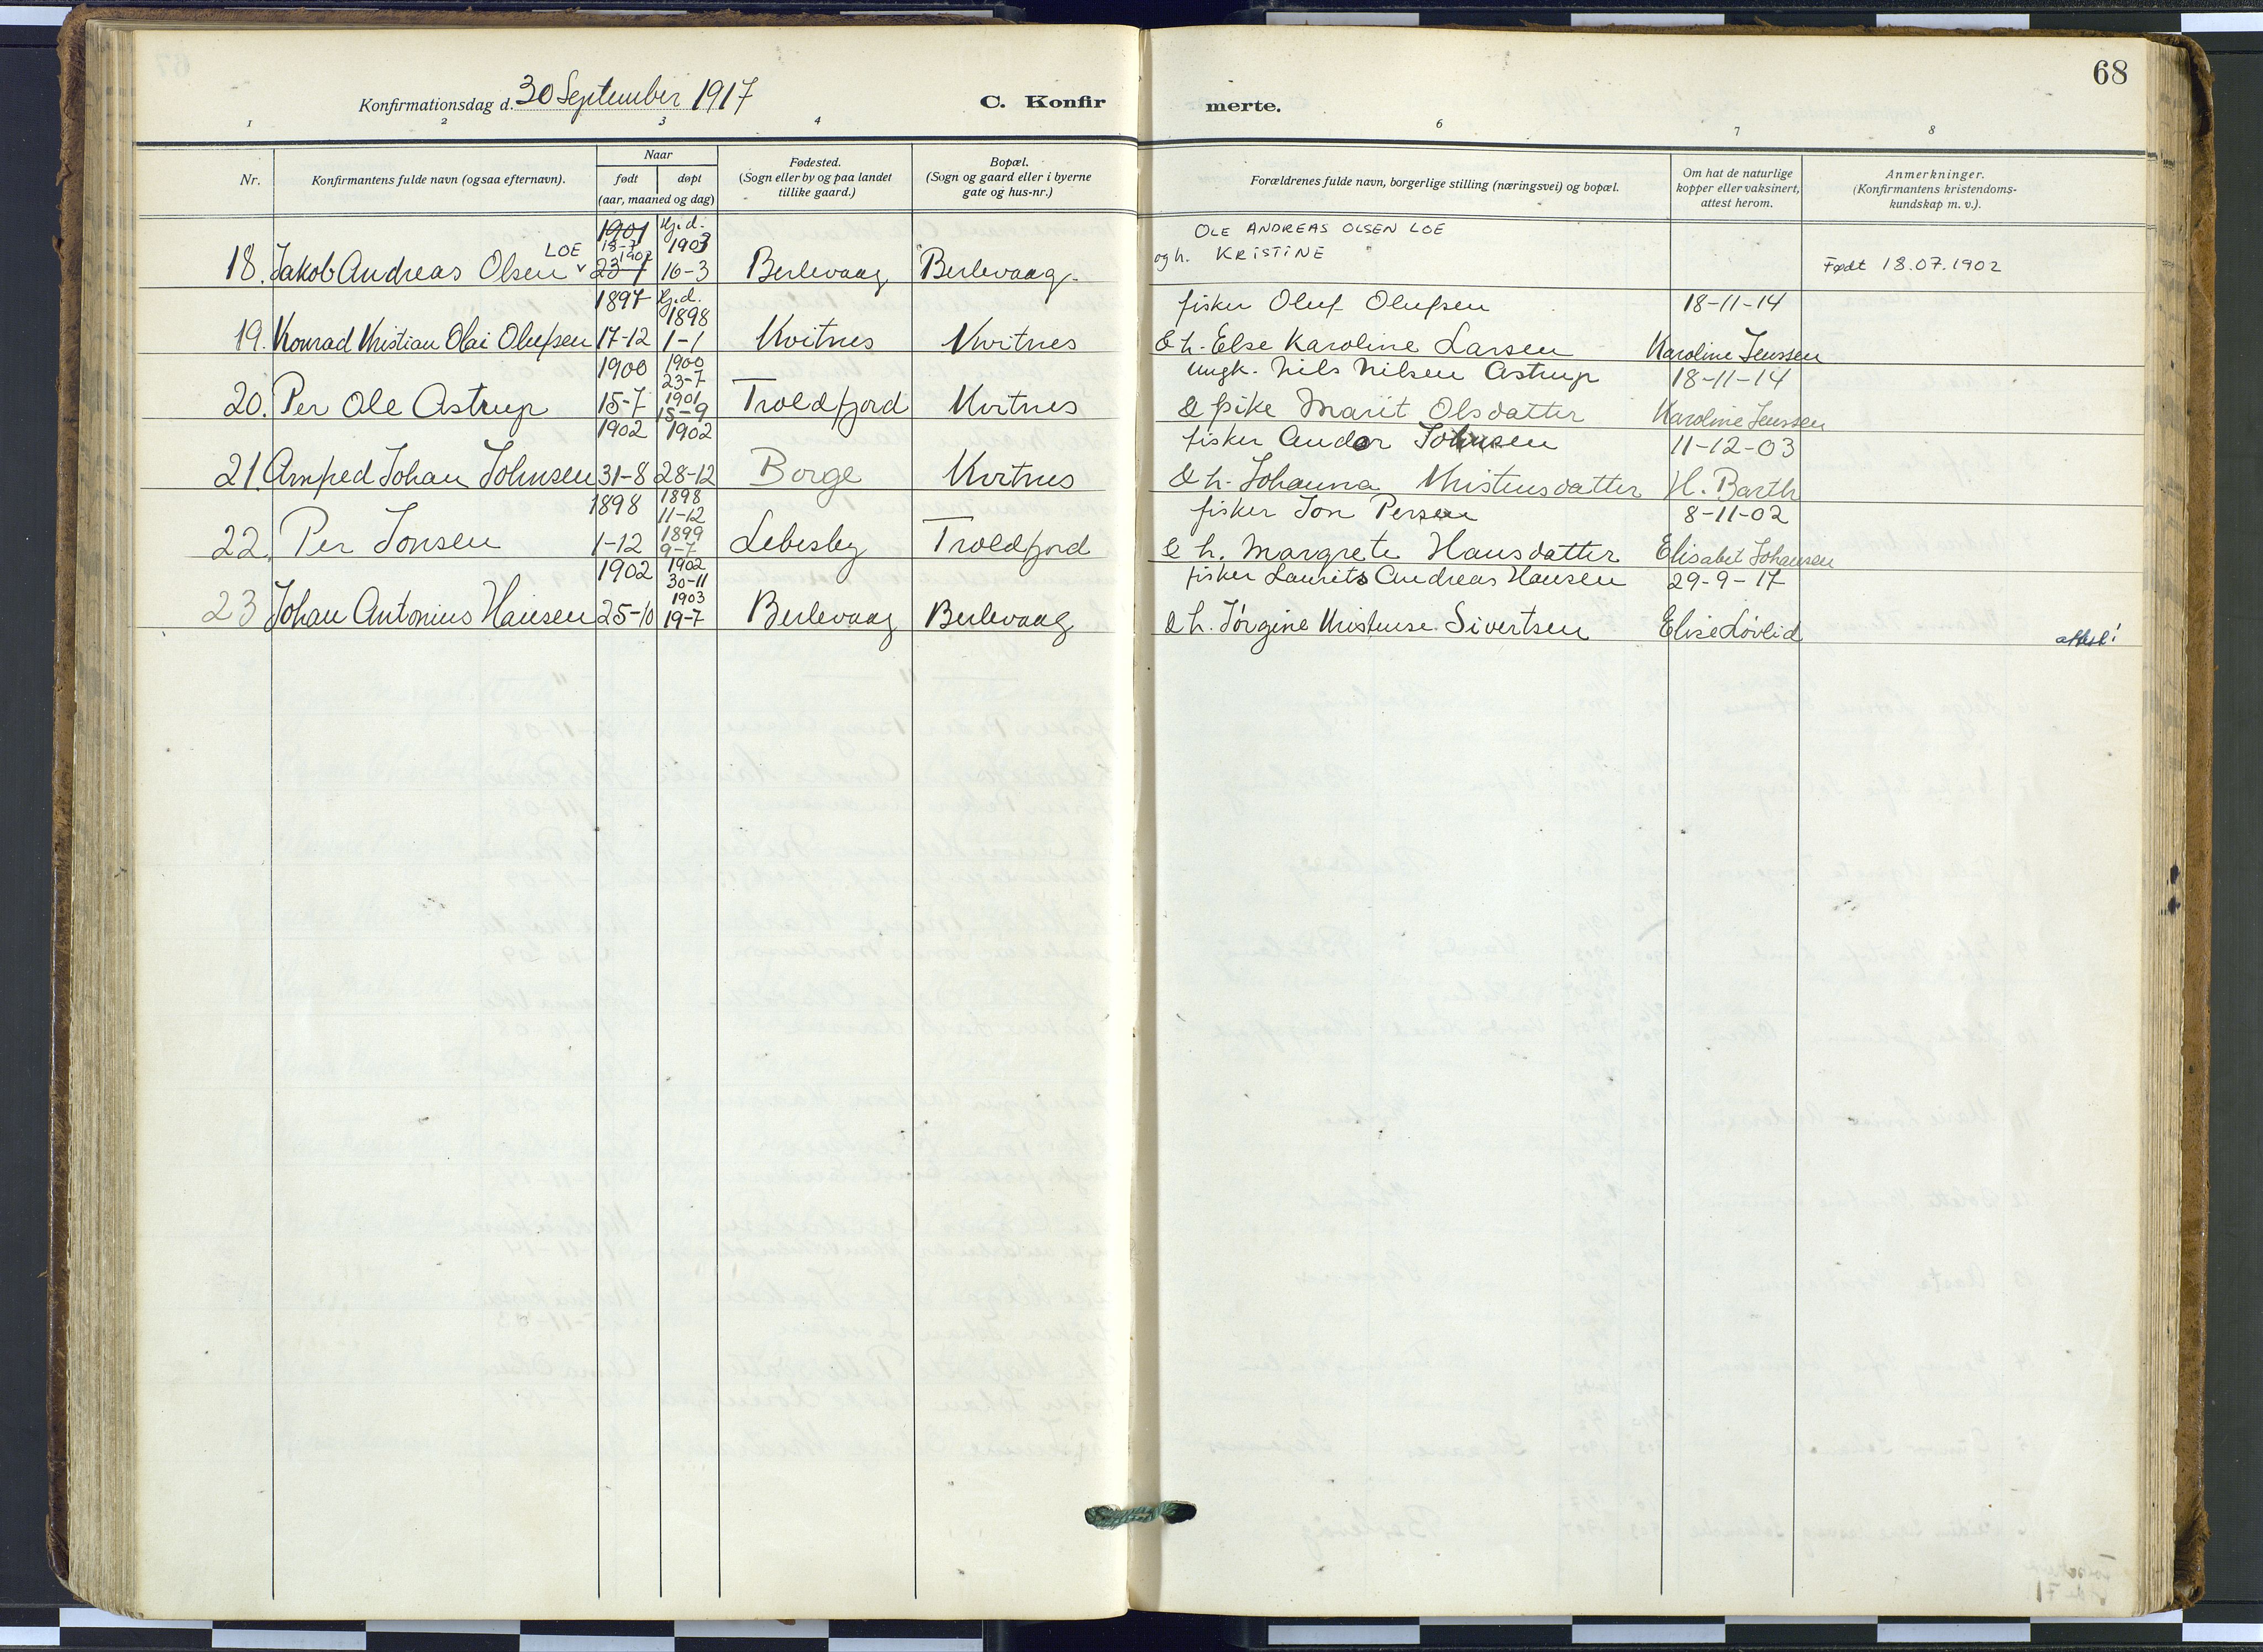 68
Konfirmationsdag d. 30 September 1917
C. Konfirmerte.
1 2 3 4 6 7 8
Nr.
Konfirmantens fulde navn (ogsaa efternavn).
Naar
født døpt
(aar, maaned og dag)
Fødested.
(Sogn eller by og paa landet
tillike gaard.)
Bopæl.
(Sogn og gaard eller i byerne
gate og hus-nr.)
Forældrenes fulde navn, borgerlige stilling (næringsvei) og bopæl.
Om hat de naturlige
kopper eller vaksinert,
attest herom.
Anmerkninger.
(Konfirmantens kristendoms-
kundskap m. v.).
1901 Hj.d. OLE ANDREAS OLSEN LOE
LOE 18-7 1902 1903 og h. KRISTINE
18. Jakob Andreas Olsen v 23-1 16-3 Berlevaag Berlevaag. Født 18.07.1902
1897 Hj.d. 1898 fisker Oluf Olufsen 18-11-14
19. Konrad Kristian Olai Olufsen 17-12 1-1 Kvitnes Kvitnes & h. Else Karoline Larsen Karoline Jenssen
1900 1900 23-7 ungk. Nils Nilsen Astrup 18-11-14
20. Per Ole Astrup 15-7 1901 15-9 Troldfjord Kvitnes & pike Marit Olsdatter Karoline Jenssen
1902 1902 fisker Andor Johnsen 11-12-03
21. Arnfred Johan Johnsen 31-8 28-12 Borge Kvitnes & h. Johanna Kristensdatter H. Barth
1898 1898 11-12 fisker Jon Persen 8-11-02
22. Per Jonsen 1-12 1899 9-7 Lebesby Troldfjord & h. Margrete Hansdatter Elisabet Johansen
1902 1902 30-11 fisker Laurits Andreas Hansen 29-9-17
23 Johan Antonius Hansen 25-10 1903 19-7 Berlevaag Berlevaag & h. Jørgine Kristense Sivertsen Elise Løvlid
attest!